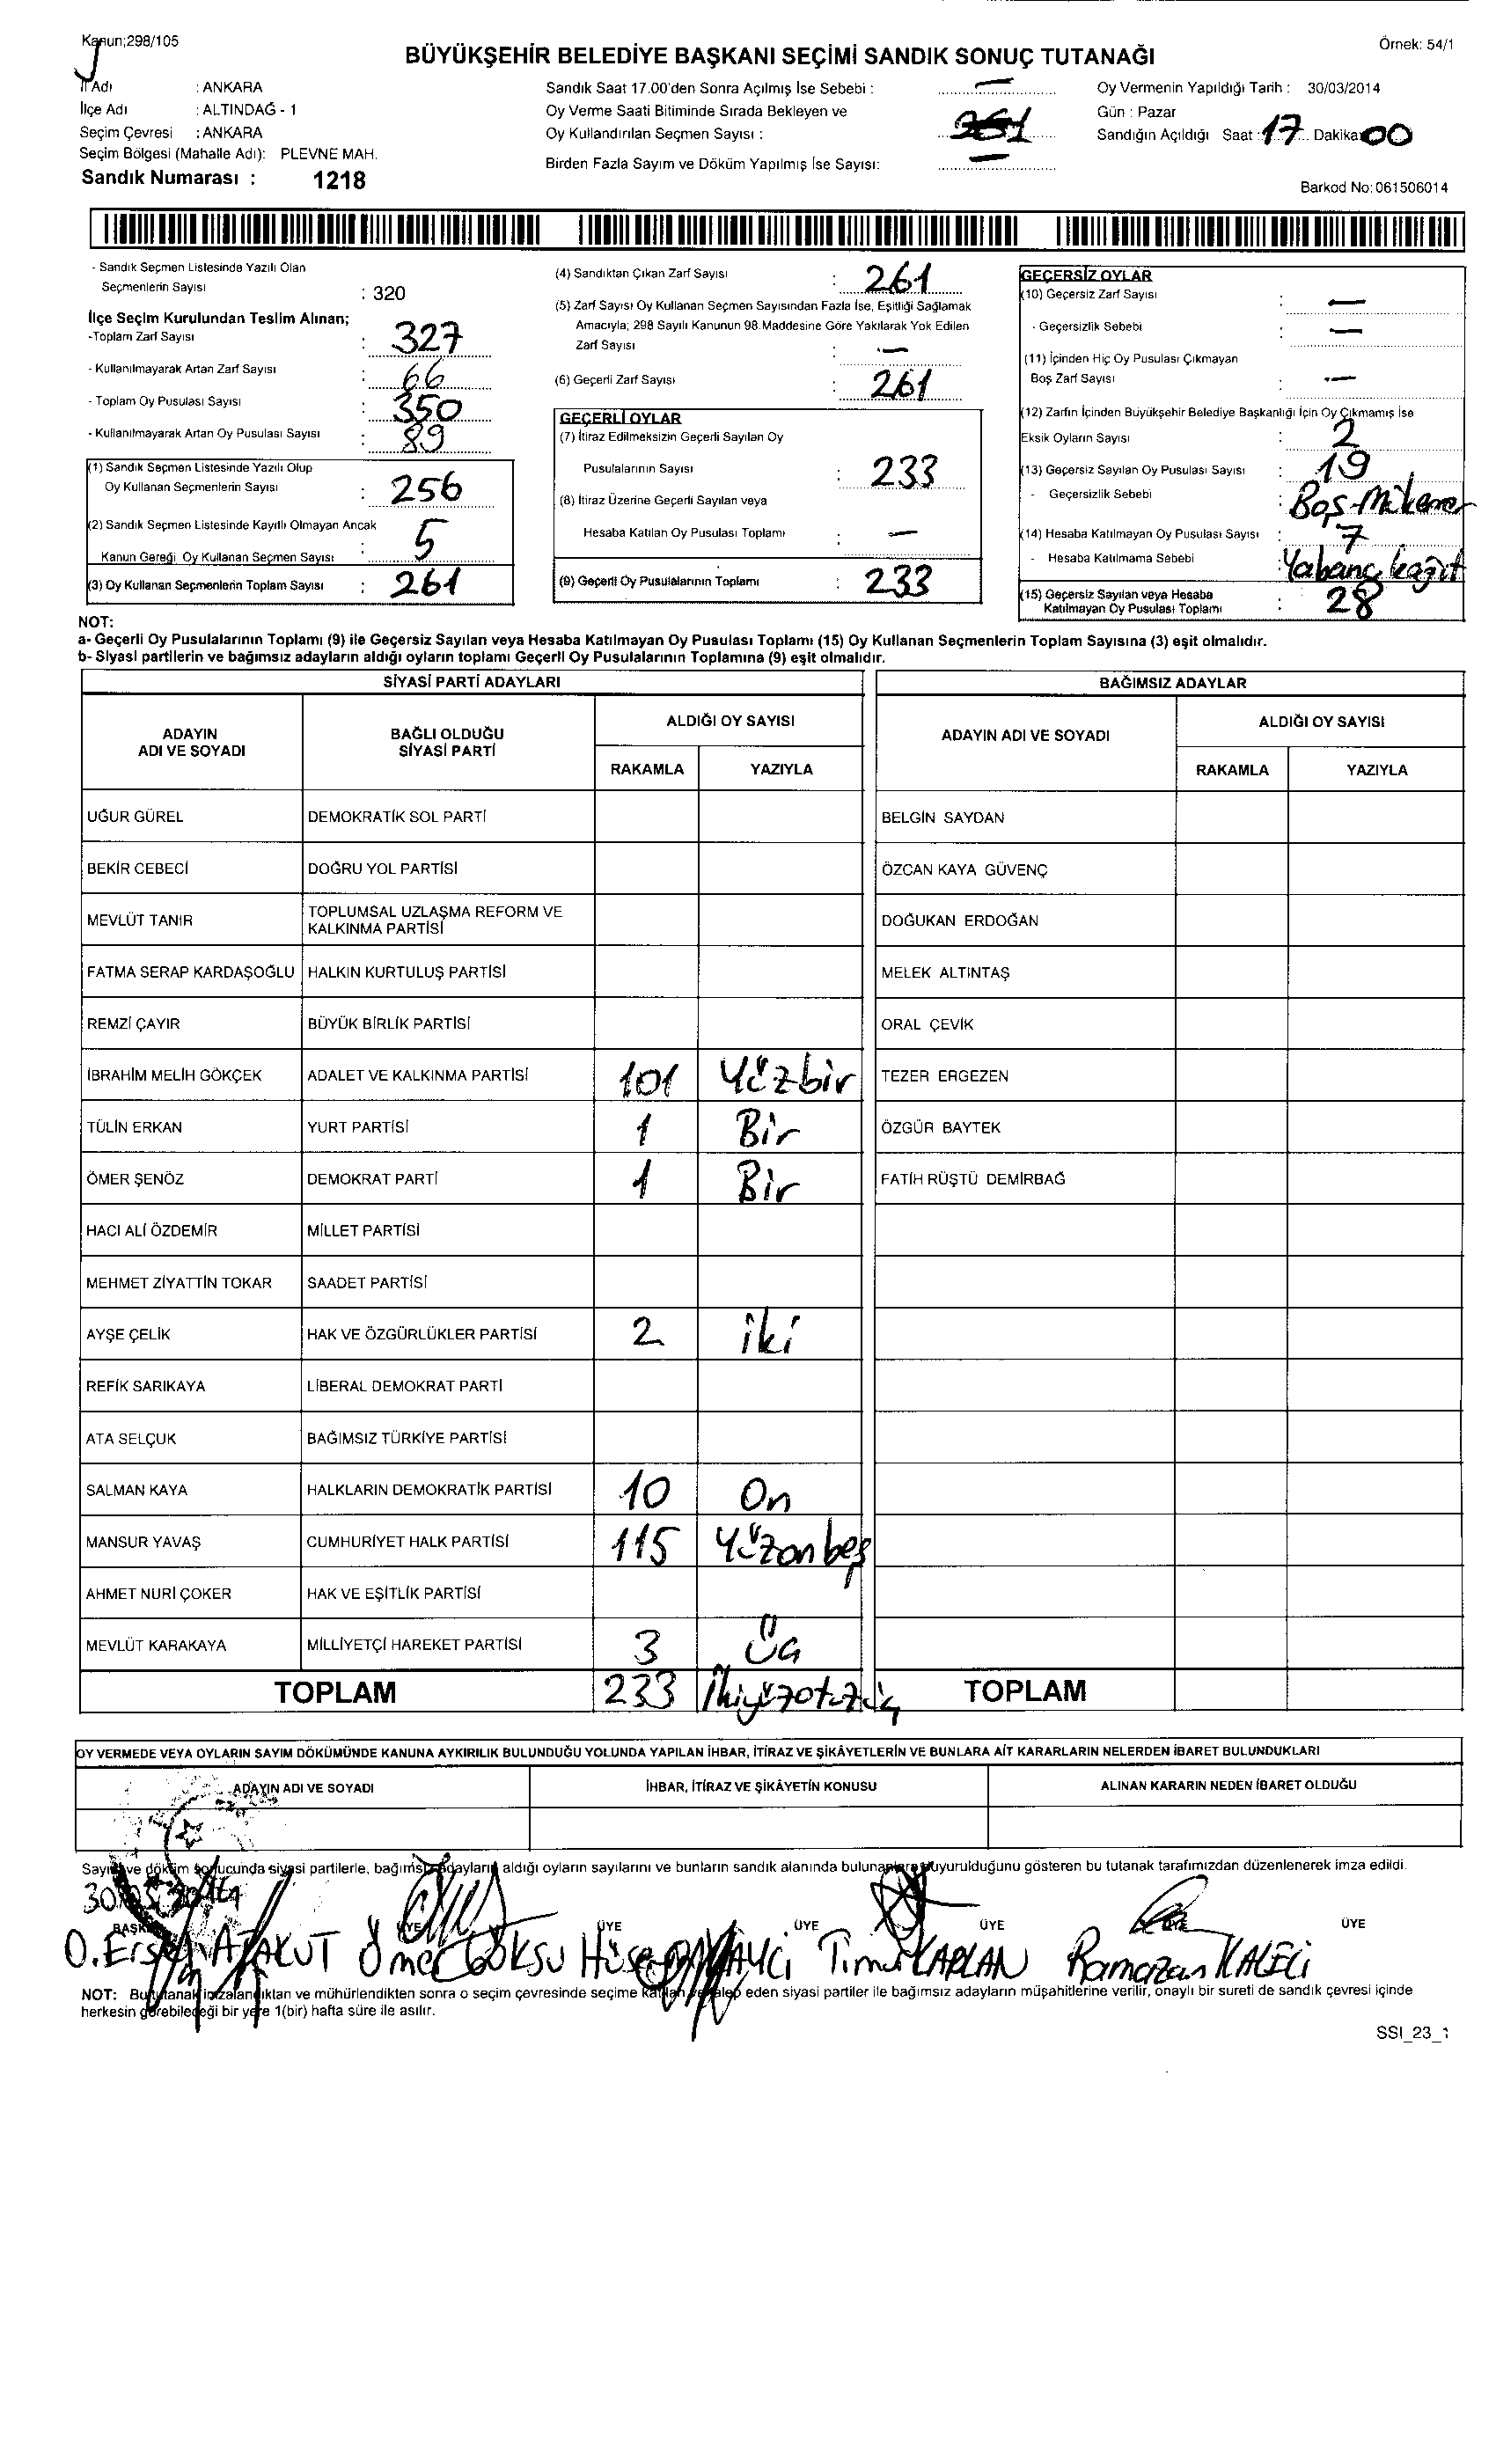 Kanun;298/105
Örnek: 54/1
BÜYÜKŞEHİR BELEDİYE BAŞKANI SEÇİMİ SANDIK SONUÇ TUTANAĞI
İl Adı : ANKARA
İlçe Adı : ALTINDAĞ - 1
Seçim Çevresi : ANKARA
Seçim Bölgesi (Mahalle Adı): PLEVNE MAH.
Sandık Numarası : 1218
Sandık Saat 17.00'den Sonra Açılmış İse Sebebi : —
Oy Verme Saati Bitiminde Sırada Bekleyen ve
Oy Kullandırılan Seçmen Sayısı :
Birden Fazla Sayım ve Döküm Yapılmış İse Sayısı: —
Oy Vermenin Yapıldığı Tarih : 30/03/2014
Gün : Pazar
Sandığın Açıldığı Saat : 17 Dakika: 00
Barkod No: 061506014
- Sandık Seçmen Listesinde Yazılı Olan
Seçmenlerin Sayısı : 320
İlçe Seçim Kurulundan Teslim Alınan;
-Toplam Zarf Sayısı : 327
- Kullanılmayarak Artan Zarf Sayısı : 66
- Toplam Oy Pusulası Sayısı : 350
- Kullanılmayarak Artan Oy Pusulası Sayısı : 89
(1) Sandık Seçmen Listesinde Yazılı Olup
Oy Kullanan Seçmenlerin Sayısı : 256
(2) Sandık Seçmen Listesinde Kayıtlı Olmayan Ancak
Kanun Gereği Oy Kullanan Seçmen Sayısı : 5
(3) Oy Kullanan Seçmenlerin Toplam Sayısı : 261
(4) Sandıktan Çıkan Zarf Sayısı : 261
(5) Zarf Sayısı Oy Kullanan Seçmen Sayısından Fazla İse, Eşitliği Sağlamak
Amacıyla; 298 Sayılı Kanunun 98.Maddesine Göre Yakılarak Yok Edilen
Zarf Sayısı : —
(6) Geçerli Zarf Sayısı : 261
GEÇERLİ OYLAR
(7) İtiraz Edilmeksizin Geçerli Sayılan Oy
Pusulalarının Sayısı : 233
(8) İtiraz Üzerine Geçerli Sayılan veya
Hesaba Katılan Oy Pusulası Toplamı : —
(9) Geçerli Oy Pusulalarının Toplamı : 233
GEÇERSİZ OYLAR
(10) Geçersiz Zarf Sayısı : —
- Geçersizlik Sebebi : —
(11) İçinden Hiç Oy Pusulası Çıkmayan
Boş Zarf Sayısı : —
(12) Zarfın İçinden Büyükşehir Belediye Başkanlığı İçin Oy Çıkmamış İse
Eksik Oyların Sayısı : 2
(13) Geçersiz Sayılan Oy Pusulası Sayısı : 19
- Geçersizlik Sebebi : Boş-
(14) Hesaba Katılmayan Oy Pusulası Sayısı : 7
- Hesaba Katılmama Sebebi : Yabancı kağıt
(15) Geçersiz Sayılan veya Hesaba
Katılmayan Oy Pusulası Toplamı : 28
NOT:
a- Geçerli Oy Pusulalarının Toplamı (9) ile Geçersiz Sayılan veya Hesaba Katılmayan Oy Pusulası Toplamı (15) Oy Kullanan Seçmenlerin Toplam Sayısına (3) eşit olmalıdır.
b- Siyasi partilerin ve bağımsız adayların aldığı oyların toplamı Geçerli Oy Pusulalarının Toplamına (9) eşit olmalıdır.
SİYASİ PARTİ ADAYLARI
BAĞIMSIZ ADAYLAR
ADAYIN ADI VE SOYADI
BAĞLI OLDUĞU SİYASİ PARTİ
ALDIĞI OY SAYISI
RAKAMLA YAZIYLA
ADAYIN ADI VE SOYADI
ALDIĞI OY SAYISI
RAKAMLA YAZIYLA
UĞUR GÜREL DEMOKRATİK SOL PARTİ BELGİN SAYDAN
BEKİR CEBECİ DOĞRU YOL PARTİSİ ÖZCAN KAYA GÜVENÇ
MEVLÜT TANIR TOPLUMSAL UZLAŞMA REFORM VE KALKINMA PARTİSİ DOĞUKAN ERDOĞAN
FATMA SERAP KARDAŞOĞLU HALKIN KURTULUŞ PARTİSİ MELEK ALTINTAŞ
REMZİ ÇAYIR BÜYÜK BİRLİK PARTİSİ ORAL ÇEVİK
İBRAHİM MELİH GÖKÇEK ADALET VE KALKINMA PARTİSİ 101 Yüzbir TEZER ERGEZEN
TÜLİN ERKAN YURT PARTİSİ 1 Bir ÖZGÜR BAYTEK
ÖMER ŞENÖZ DEMOKRAT PARTİ 1 Bir FATİH RÜŞTÜ DEMİRBAĞ
HACI ALİ ÖZDEMİR MİLLET PARTİSİ
MEHMET ZİYATTİN TOKAR SAADET PARTİSİ
AYŞE ÇELİK HAK VE ÖZGÜRLÜKLER PARTİSİ 2 iki
REFİK SARIKAYA LİBERAL DEMOKRAT PARTİ
ATA SELÇUK BAĞIMSIZ TÜRKİYE PARTİSİ
SALMAN KAYA HALKLARIN DEMOKRATİK PARTİSİ 10 On
MANSUR YAVAŞ CUMHURİYET HALK PARTİSİ 115 Yüzonbeş
AHMET NURİ ÇOKER HAK VE EŞİTLİK PARTİSİ
MEVLÜT KARAKAYA MİLLİYETÇİ HAREKET PARTİSİ 3 Üç
TOPLAM 233 İkiyüzotuzüç TOPLAM
OY VERMEDE VEYA OYLARIN SAYIM DÖKÜMÜNDE KANUNA AYKIRILIK BULUNDUĞU YOLUNDA YAPILAN İHBAR, İTİRAZ VE ŞİKÂYETLERİN VE BUNLARA AİT KARARLARIN NELERDEN İBARET BULUNDUKLARI
ADAYIN ADI VE SOYADI İHBAR, İTİRAZ VE ŞİKÂYETİN KONUSU ALINAN KARARIN NEDEN İBARET OLDUĞU
Sayım ve döküm sonucunda siyasi partilerle, bağımsız adayların aldığı oyların sayılarını ve bunların sandık alanında bulunanlara duyurulduğunu gösteren bu tutanak tarafımızdan düzenlenerek imza edildi.
BAŞKAN ÜYE ÜYE ÜYE ÜYE ÜYE ÜYE
Ömer GÖKSU KAPLAN Ramazan KALECİ
NOT: Bu tutanak imzalandıktan ve mühürlendikten sonra o seçim çevresinde seçime katılan ve talep eden siyasi partiler ile bağımsız adayların müşahitlerine verilir, onaylı bir sureti de sandık çevresi içinde
herkesin görebileceği bir yere 1(bir) hafta süre ile asılır.
SSI_23_1